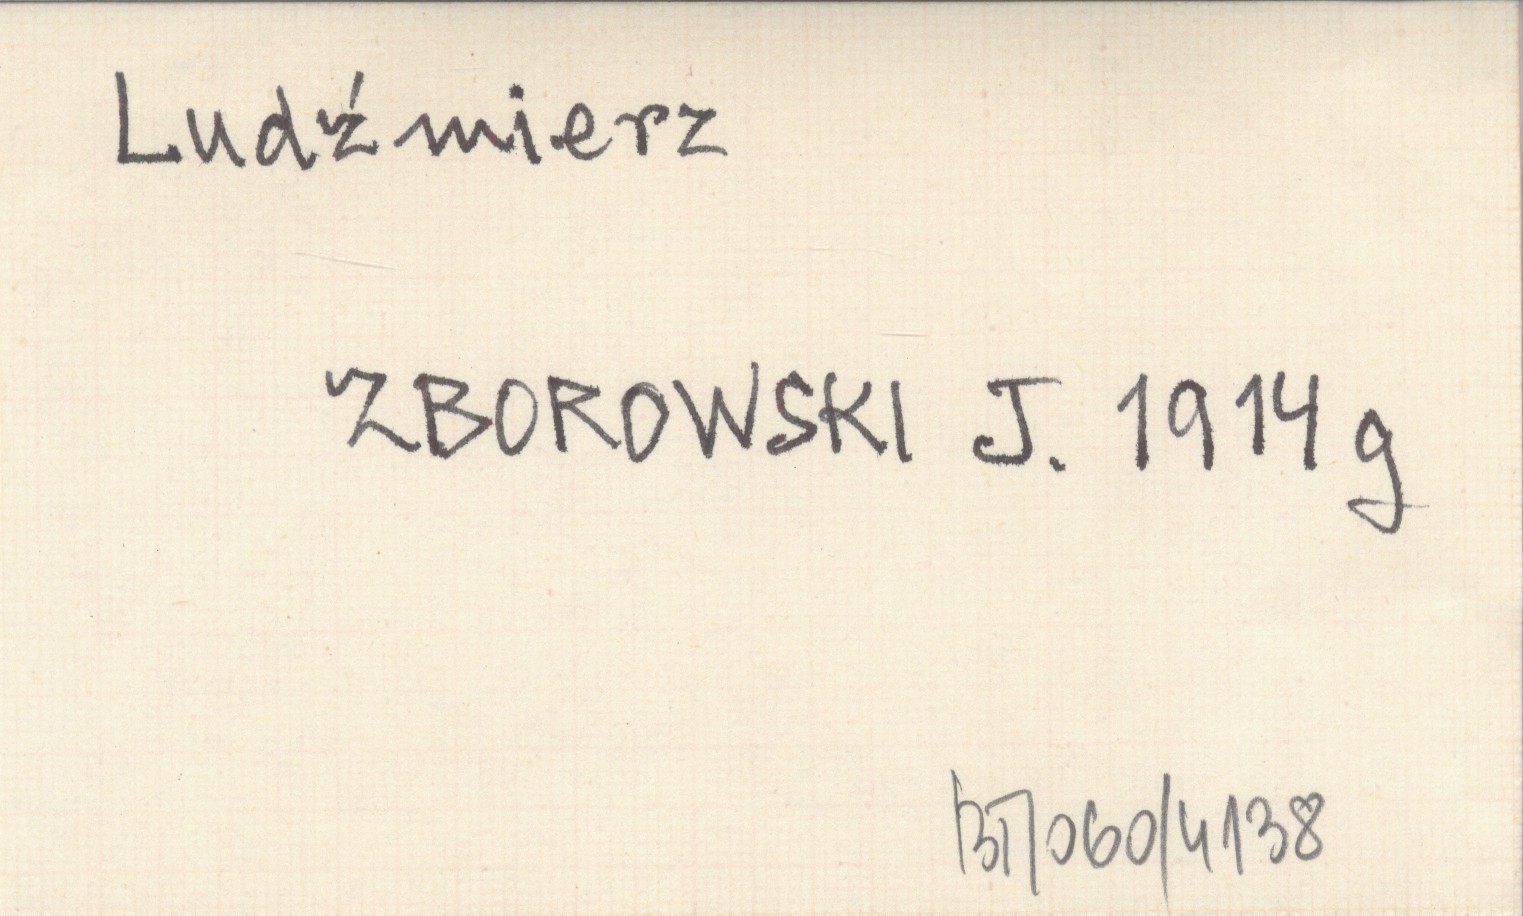 Ludźmierz
ZBOROWSKI J. 1914 g
BT/060/4138